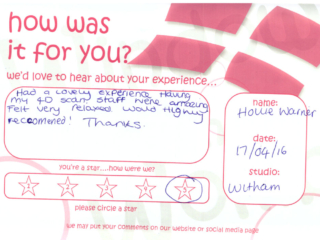 how was
it for you?
we'd love to hear about your experience...
Had a lovely experience Having
my 4D scan, staff were amazing
Felt very relaxed would Highly
reccomened! Thanks.
name:
Hollie Warner
date:
17/04/16
studio:
Witham
you're a star....how were we?
please circle a star
we may put your comments on our website or social media page